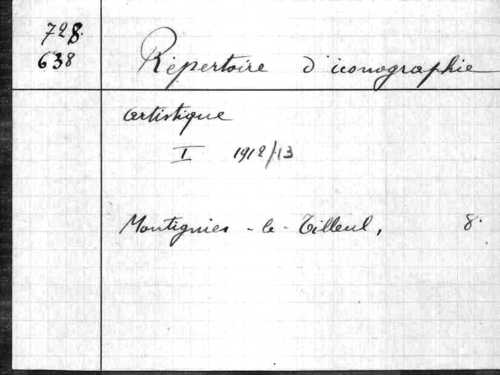 728.
638
Répertoire d'iconographie
artistique
I 1912/13
Montignies-le-Tilleul, 8.